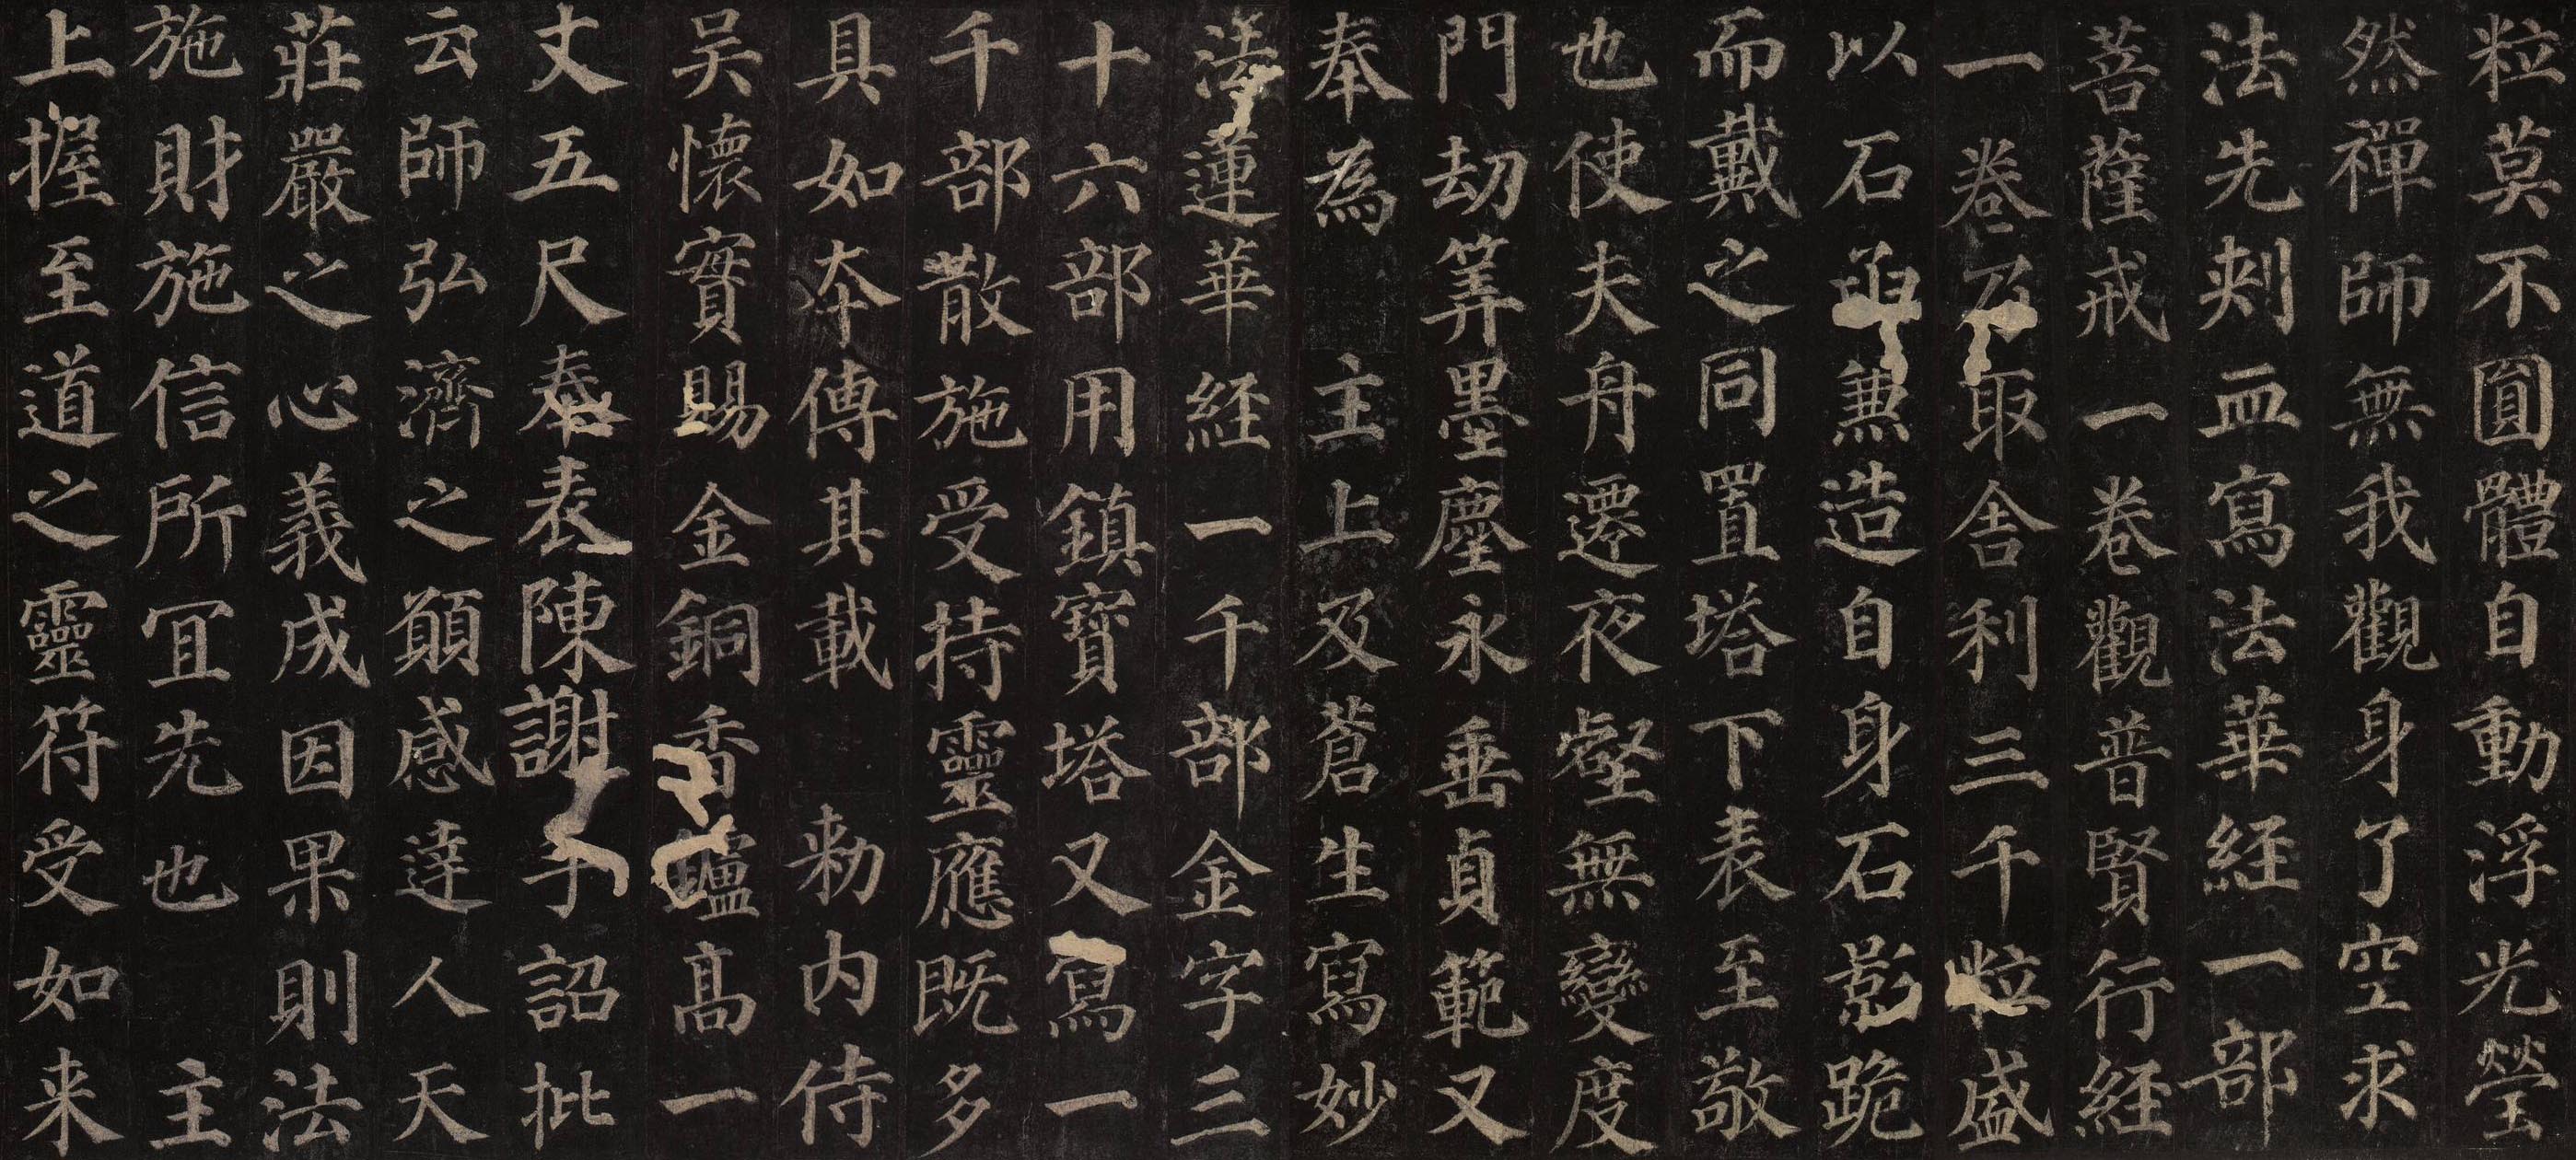 粒莫不圓體自動浮光瑩
然禪師無我觀身了空求
法先刾血寫法華経一部
菩薩戒一卷觀普賢行経
一卷乃取舍利三千粒盛
以石函兼造自身石影跪
而戴之同置塔下表至敬
也使夫舟遷夜壑無變度
門劫筭墨塵永垂貞範又
奉為 主上及蒼生寫妙
法蓮華経一千部金字三
十六部用鎮寶塔又寫一
千部散施受持靈應既多
具如本傳其載 勑内侍
吴懷實賜金銅香鑪髙一
丈五尺奉表陳謝手詔批
云師弘濟之願感達人天
莊嚴之心義成因果則法
施財施信所宜先也 主
上握至道之靈符受如来